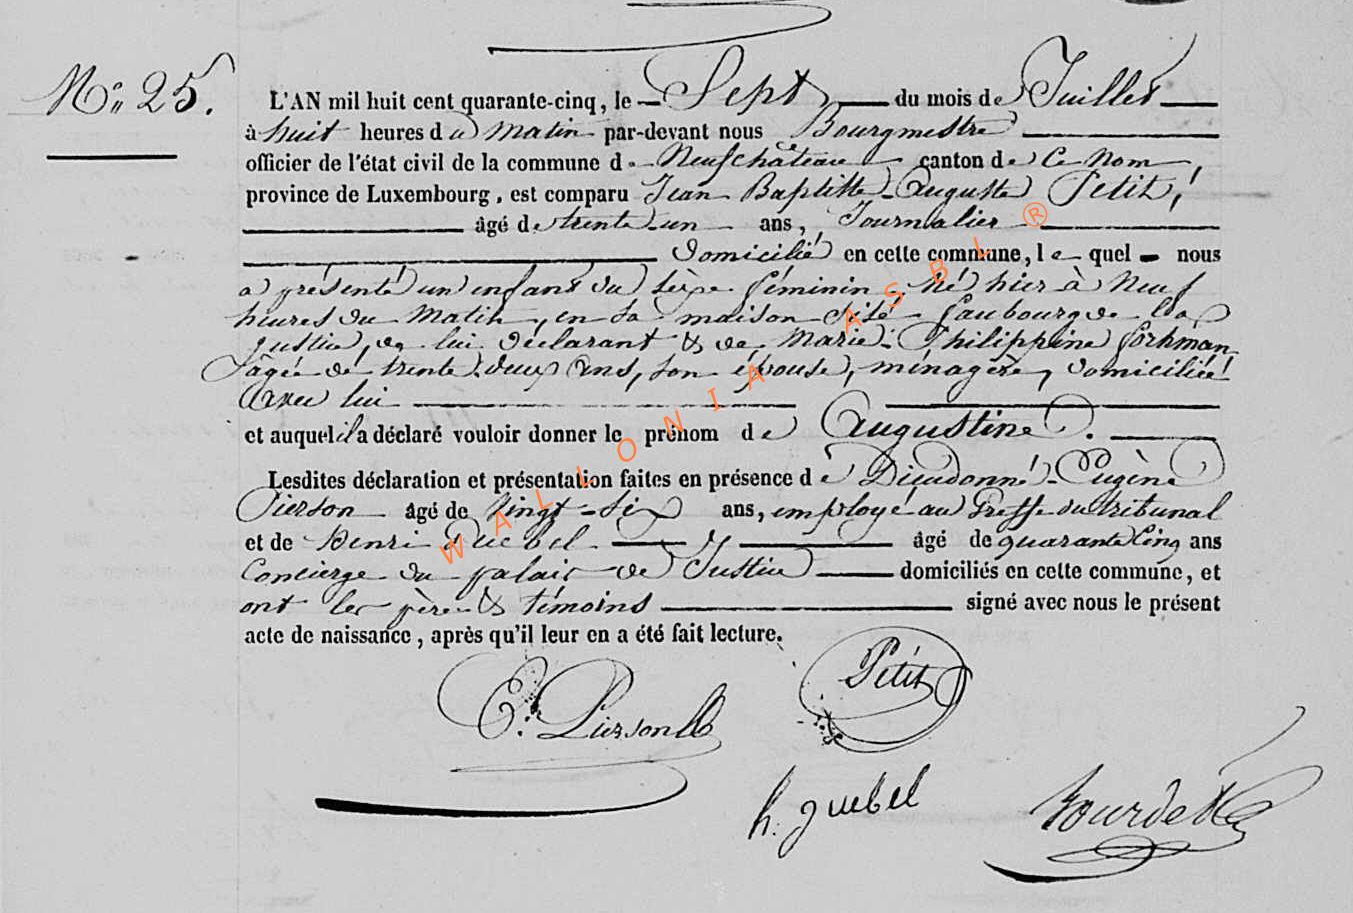 N° 25.
L'AN mil huit cent quarante-cinq, le Sept du mois de Juillet
à huit heures du matin par-devant nous Bourgmestre
officier de l'état civil de la commune de Neufchâteau canton de Ce nom,
province de Luxembourg, est comparu Jean Baptiste Auguste Petit,
âgé de trente un ans, Journalier
domicilié en cette commune, le quel nous
a présenté un enfant du sèxe féminin, né hier à Neuf
heures du Matin, en sa maison sité faubourg de la
justice, de lui déclarant & de Marie-Philippine
âgée de trente deux ans, son épouse, ménagère, domiciliée
avec lui
et auquel il a déclaré vouloir donner le prénom de Augustine.
Lesdites déclaration et présentation faites en présence de Dieudonné-Eugène
Pierson âgé de vingt-six ans, employé au Greffe du tribunal
et de Henri Guebel âgé de quarante Cinq ans
Concierge du palais de Justice domiciliés en cette commune, et
ont les père & témoins signé avec nous le présent
acte de naissance, après qu'il leur en a été fait lecture.
E. Pierson
Petit
h. guebel
WALLONIA ASBL ®